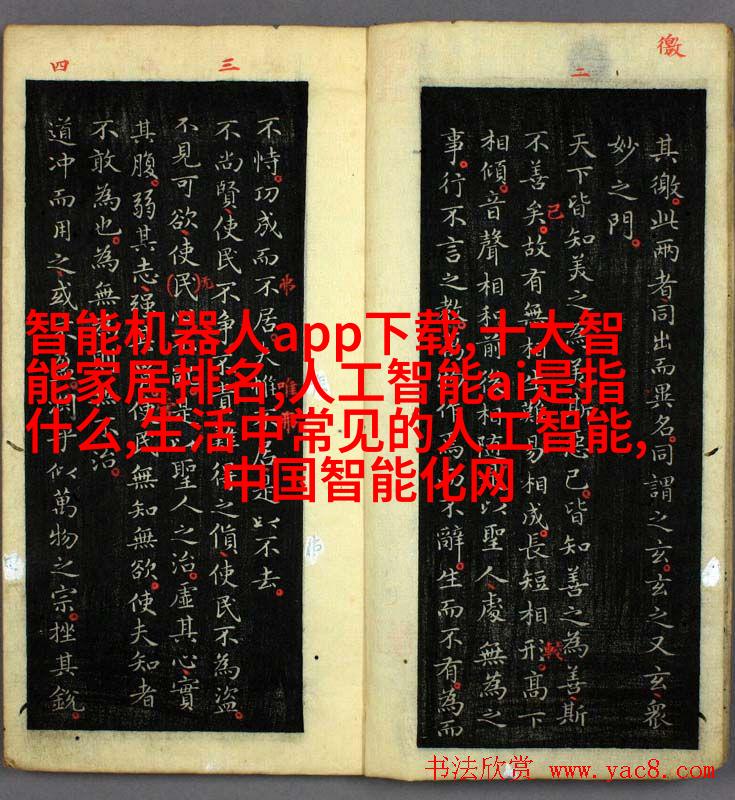 徼
二
其徼。此兩者。同出而異名。同謂之玄。玄之又玄。衆
妙之門。
天下皆知美之為美斯惡已。皆知善之為善斯
不善矣。故有無相難易相成。長短相形。高下
相傾。音聲相和前相随以聖人處無為之
事。行不言之教作焉不辭。生而不有。為而
三
四
不恃。功成而不居。夫惟居是以不去。
不尚賢。使民不争得之貨。使民不為盜。
不見可欲。使民以聖人之治。虛其心。實
其腹。弱其志。強使民無知無欲。使夫知者
不敢為也。為無治。
道冲而用之。或乎似萬物之宗。挫其銳。
智能机器人app下载,十大智
能家居排名,人工智能ai是指
什么,生活中常见的人工智能,
中国智能化网
书法欣赏 www.yac8.com